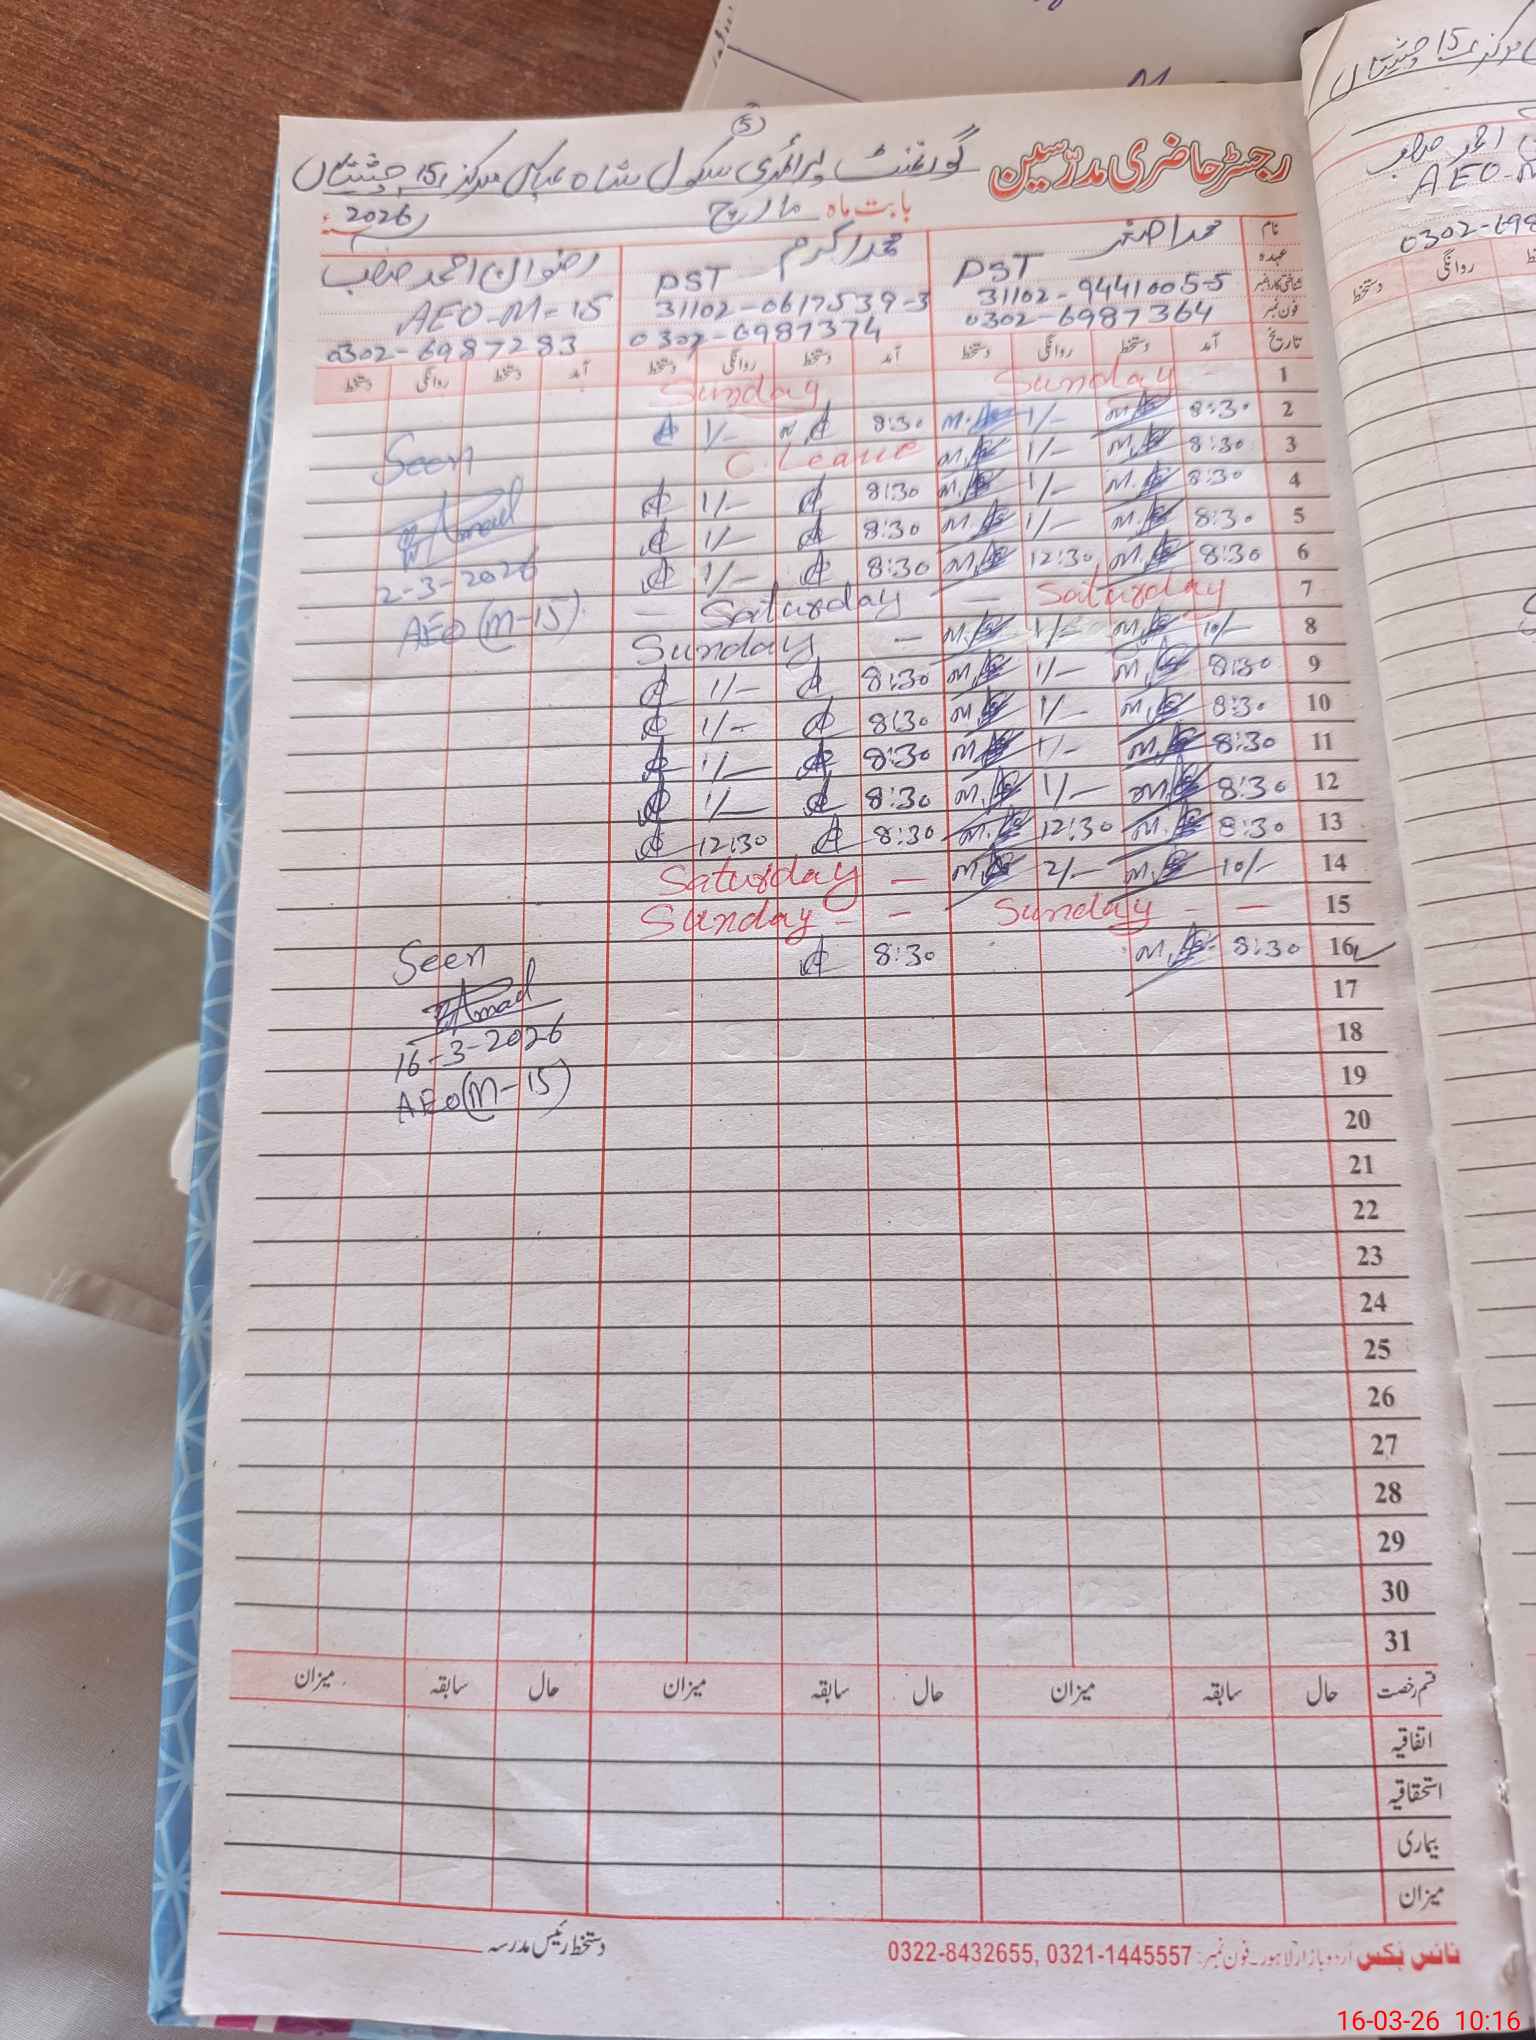 رجسٹر حاضری مدرسین
گورنمنٹ پرائمری سکول شاہ عباس مرکز 15 چشتیاں
(5)
بابت ماہ مارچ 2026ء
نام محمد اصغر محمد اکرم رضوان احمد صاحب
عہدہ PST PST AEO-M-15
شناختی کارڈ نمبر 31102-9441005-5 31102-0617539-3
فون نمبر 0302-6987364 0302-6987374 0302-6987283
تاریخ آمد دستخط روانگی دستخط آمد دستخط روانگی دستخط آمد دستخط روانگی دستخط
1 Sunday Sunday
2 8:30 1/- 8:30 1/-
3 8:30 1/- C.Leave
4 8:30 1/- 8:30 1/-
5 8:30 1/- 8:30 1/-
6 8:30 12:30 8:30 1/-
7 Saturday — Saturday —
8 10/- 1/- — Sunday
9 8:30 1/- 8:30 1/-
10 8:30 1/- 8:30 1/-
11 8:30 1/- 8:30 1/-
12 8:30 1/- 8:30 1/-
13 8:30 12:30 8:30 12:30
14 10/- 2/- — Saturday
15 — Sunday — Sunday
16 8:30 8:30
17
18
19
20
21
22
23
24
25
26
27
28
29
30
31
Seen
2-3-2026
AEO (M-15)
Seen
16-3-2026
AEO (M-15)
قسم رخصت حال سابقہ میزان حال سابقہ میزان حال سابقہ میزان
اتفاقیہ
استحقاقیہ
بیماری
میزان
دستخط رئیس مدرسہ
نائس بکس اردو بازار لاہور۔ فون نمبر: 0322-8432655, 0321-1445557
مرکز 15 چشتیاں
احمد صاحب
AEO-M
0302-698
روانگی دستخط
16-03-26 10:16